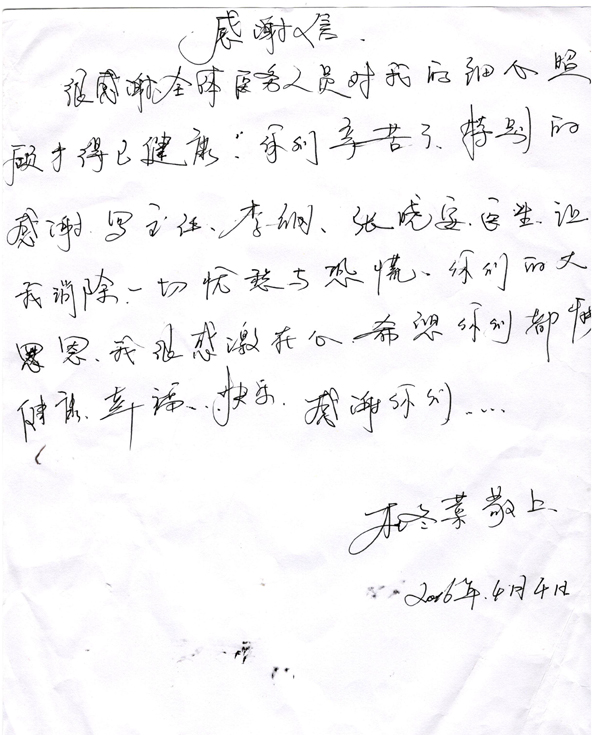 感谢信.
很感谢全体医务人员对我的细心照
顾才得已健康. 你们辛苦了、特别的
感谢 主任、李钢、张晓 医生 让
我消除一切忧愁与恐慌、你们的大
恩、我很感激在心 希望你们都
健康 幸福、快乐. 感谢你们.....
杜冬菜 敬上
2016年.4月4日